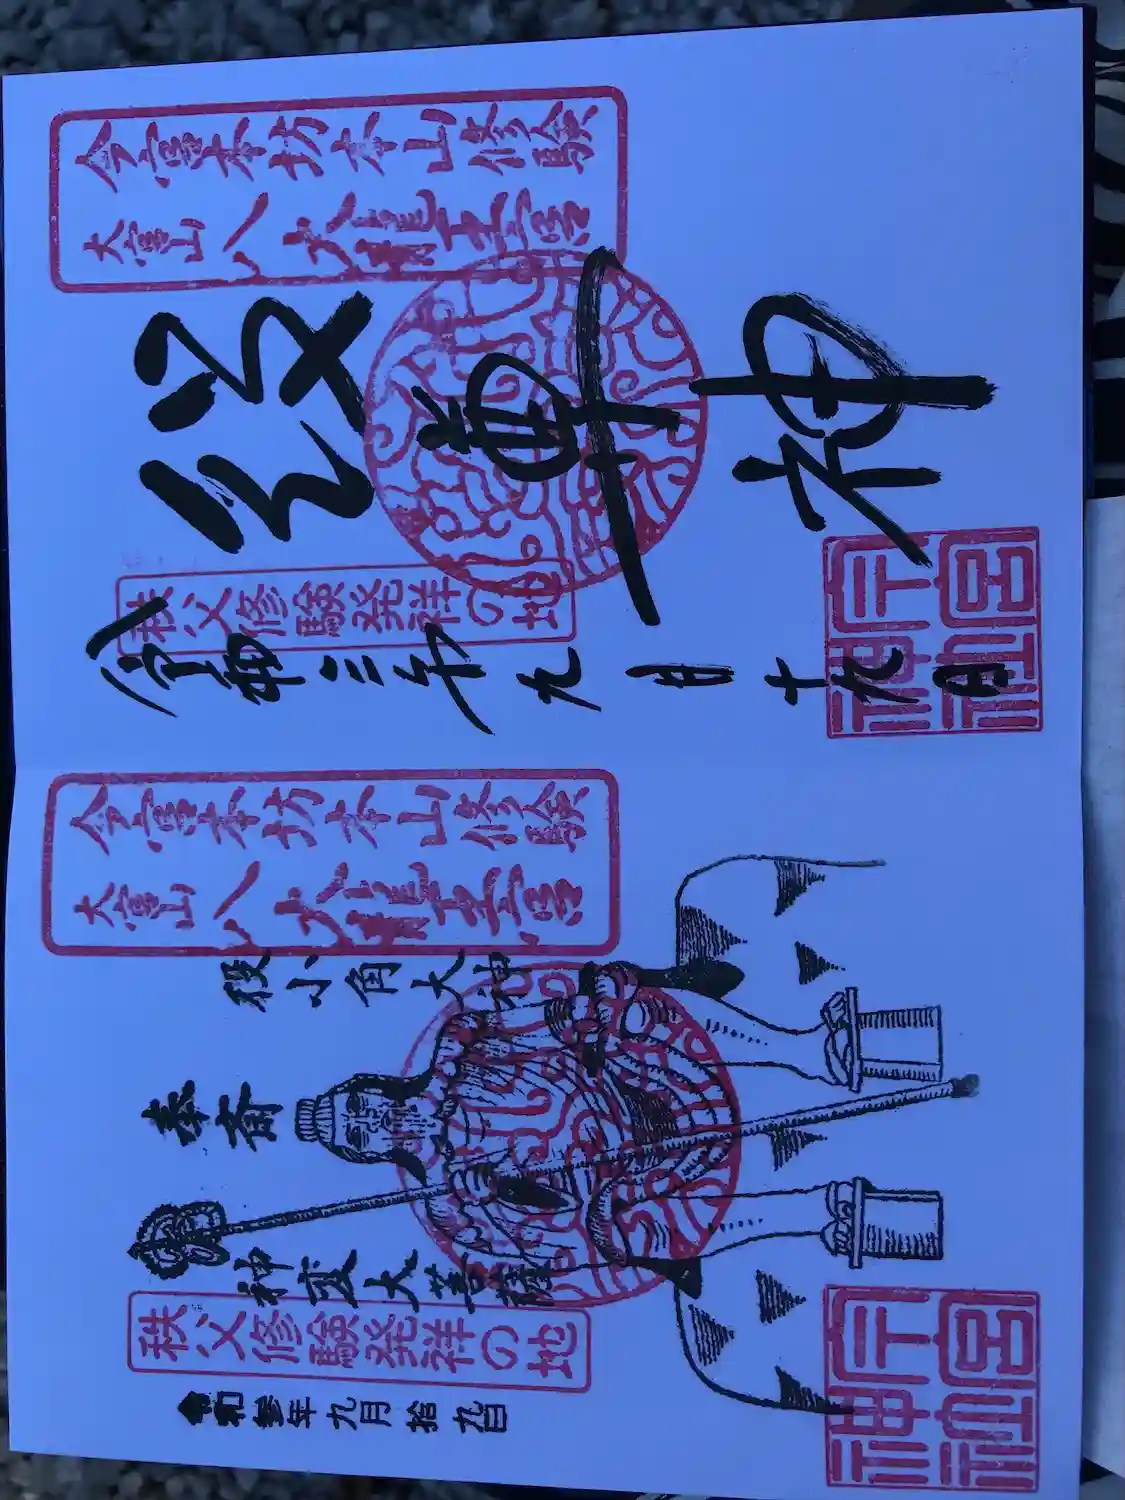 今宮本坊本山修験
大宮山八大龍王宮
役尊神
秩父修験発祥の地
令和三年九月十九日
今宮
神社
今宮本坊本山修験
大宮山八大龍王宮
役小角大神
奉斎
神変大菩薩
秩父修験発祥の地
令和参年九月拾九日
今宮
神社